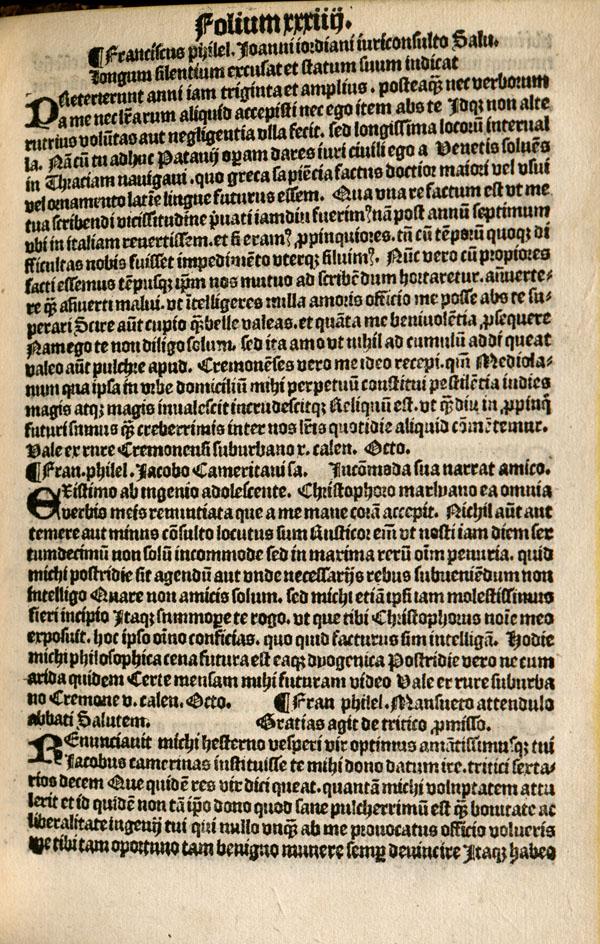 Folium xxxiiij.
¶Franciscus philel. Ioanni iordiani iuriconsulto Salu.
longum silentium excusat et statum suum indicat
PReterierunt anni iam triginta et amplius. posteaq̄ nec verborum
a me nec lr̄arum aliquid accepisti nec ego item abs te Idqꝫ non alte
rutrius volūtas aut negligentia vlla fecit. sed longissima locorū interual
la. Nā cū tu adhuc Patauij opam dares iuri ciuili ego a Venetis soluēs
in Thraciam nauigaui. quo greca sapiēcia factus doctior maiori vel vsui
vel ornamento latīe lingue futurus essem. Qua vna re factum est vt me
tua scribendi vicissitudine p̄uati iamdiu fuerim? nā post annū septimum
vbi in italiam reuertissem. et si eram? ꝓpinquiores. tū cū tēporū quoqꝫ di
fficultas nobis fuisset impedimēto vterqꝫ siluim?. Nūc vero cū propiores
facti essemus tēpusqꝫ ip̄m nos mutuo ad scribēdum hortaretur. aīuerte-
re q̄ asiuerti malui. vt ītelligeres nulla amoris officio me posse abs te su-
perari Scire aūt cupio q̄belle valeas. et quāta me beniuolētia ꝓsequere
Nam ego te non diligo solum. sed ita amo vt nihil ad cumulū addi queat
valeo aūt pulchre apud. Cremonēses vero me ideo recepi. qm̄ Mediola-
num qua ipsa in vrbe domiciliū mihi perpetuū constitui pestilētia indies
magis atqꝫ magis inualescit incrudescitqꝫ Reliquū est. vt q̄diu in ꝓpinq̄
futuri sumus q̄ creberrimis inter nos lr̄is quotidie aliquid cōmētemur.
Vale ex rure Cremonensi suburbano x. calen. Octo.
¶Fran. philel. Jacobo Cameritani sa. Incōmoda sua narrat amico.
EXistimo ab ingenio adolescente. Christophoro marliano ea omnia
verbis meis renuntiata que a me mane corā accepit. Nichil aūt aut
temere aut minus cōsulto locutus sum Rusticor em̄ vt nosti iam diem sex
tumdecimū non solū incommode sed in maxima rerū oīm penuria. quid
michi postridie sit agendū aut vnde necessarijs rebus subueniēdum non
intelligo Quare non amicis solum. sed michi etiā ipsi iam molestissimus
fieri incipio Itaqꝫ summope te rogo. vt que tibi Christophorus noīe meo
exposuit. hoc ipso oīno conficias. quo quid facturus sim intelligā. Hodie
michi philosophica cena futura est eaqꝫ dyogenica Postridie vero ne cum
arida quidem Certe mensam mihi futuram video Vale ex rure suburba
no Cremone v. calen. Octo. ¶Fran philel. Mansueto attendulo
abbati Salutem. Gratias agit de tritico ꝓmisso.
REnunciauit michi hesterno vesperi vir optimus amātissimusqꝫ tui
Jacobus camerinas instituisse te mihi dono datum ire. tritici sexta-
rios decem Que quidē res vix dici queat. quantā michi voluptatem attu
lerit et id quidē non tā ip̄o dono quod sane pulcherrimū est q̄ bonitate ac
liberalitate ingenij tui qui nullo vnq̄ ab me prouocatus officio volueris
me tibi tam oportuno tam benigno munere semꝑ deuincire Itaqꝫ habeo